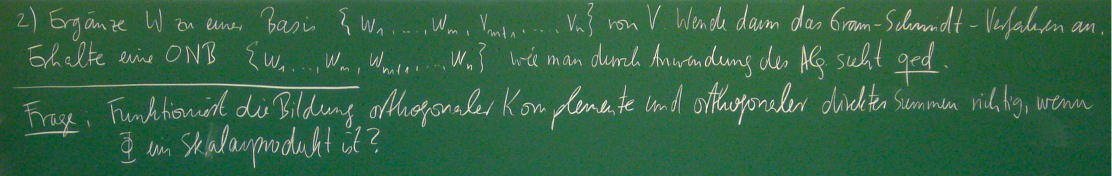 2) Ergänze W zu einer Basis {w₁, ..., wₘ, vₘ₊₁, ..., vₙ} von V Wende dann das Gram-Schmidt-Verfahren an.
Erhalte eine ONB {w₁ ..., wₘ, wₘ₊₁, ... wₙ} wie man durch Anwendung des Alg sieht qed.
Frage: Funktioniert die Bildung orthogonaler Komplemente und orthogonaler direkter Summen richtig, wenn
Φ ein Skalarprodukt ist?